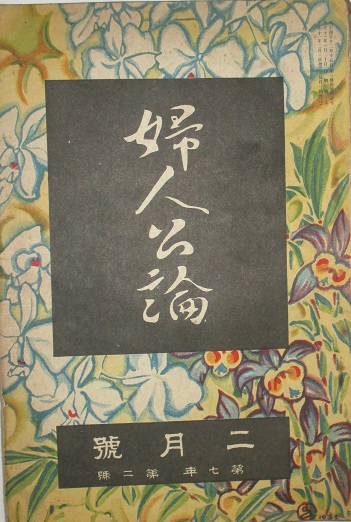 婦人公論
二月號
第七年 第二號